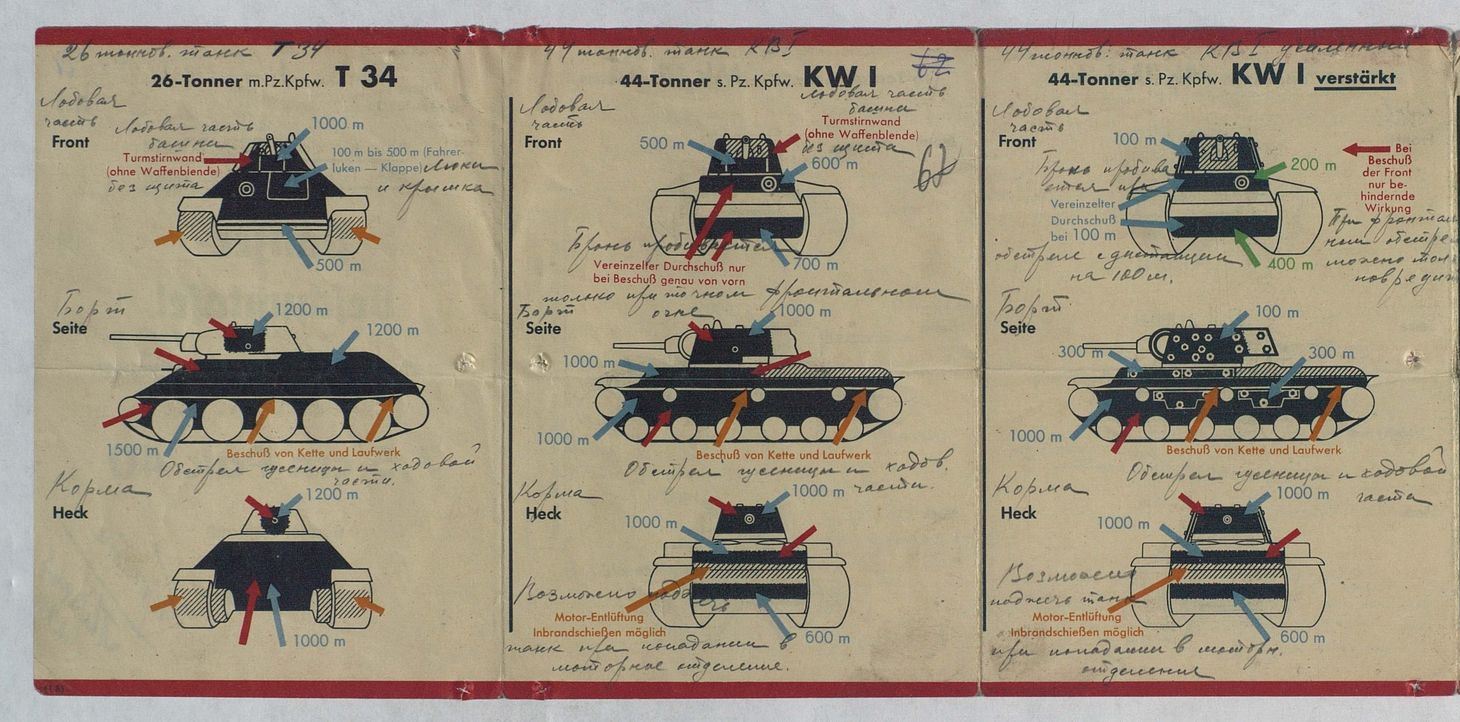 26 тоннов. танк Т 34
26-Tonner m.Pz.Kpfw. T 34
Лобовая
часть
Front
Лобовая часть
башни
Turmstirnwand
(ohne Waffenblende)
без щита
1000 m
100 m bis 500 m (Fahrer-
luken — Klappe) Люки
и крышка
500 m
Борт
Seite
1200 m
1200 m
1500 m
Beschuß von Kette und Laufwerk
Обстрел гусеницы и ходовой
части.
Корма
Heck
1200 m
1000 m
44 тоннов. танк КВ I
62
44-Tonner s. Pz. Kpfw. KW I
Лобовая
часть
Front
Лобовая часть
башни
Turmstirnwand
(ohne Waffenblende)
без щита
500 m
600 m
62
700 m
Бронь пробивается
Vereinzelter Durchschuß nur
bei Beschuß genau von vorn
только при точном фронтальном
огне
Борт
Seite
1000 m
1000 m
1000 m
Beschuß von Kette und Laufwerk
Обстрел гусеницы и ходов.
части.
Корма
Heck
1000 m
1000 m
Возможно поджечь
Motor-Entlüftung
Inbrandschießen möglich
600 m
танк при попадании в
моторное отделение.
44 тоннов. танк КВ I усиленный
44-Tonner s. Pz. Kpfw. KW I verstärkt
Лобовая
часть
Front
100 m
200 m
Bei
Beschuß
der Front
nur be-
hindernde
Wirkung
Бронь пробива
ется при
Vereinzelter
Durchschuß
bei 100 m
400 m
обстреле с дистанции
на 100 м.
При фронталь
ном обстреле
можно
повредит
Борт.
Seite
100 m
300 m
300 m
1000 m
Beschuß von Kette und Laufwerk
Обстрел гусеницы и ходовой
части
Корма
Heck
1000 m
1000 m
Возможно
поджечь танк
Motor-Entlüftung
Inbrandschießen möglich
600 m
при попадании в моторн.
отделения